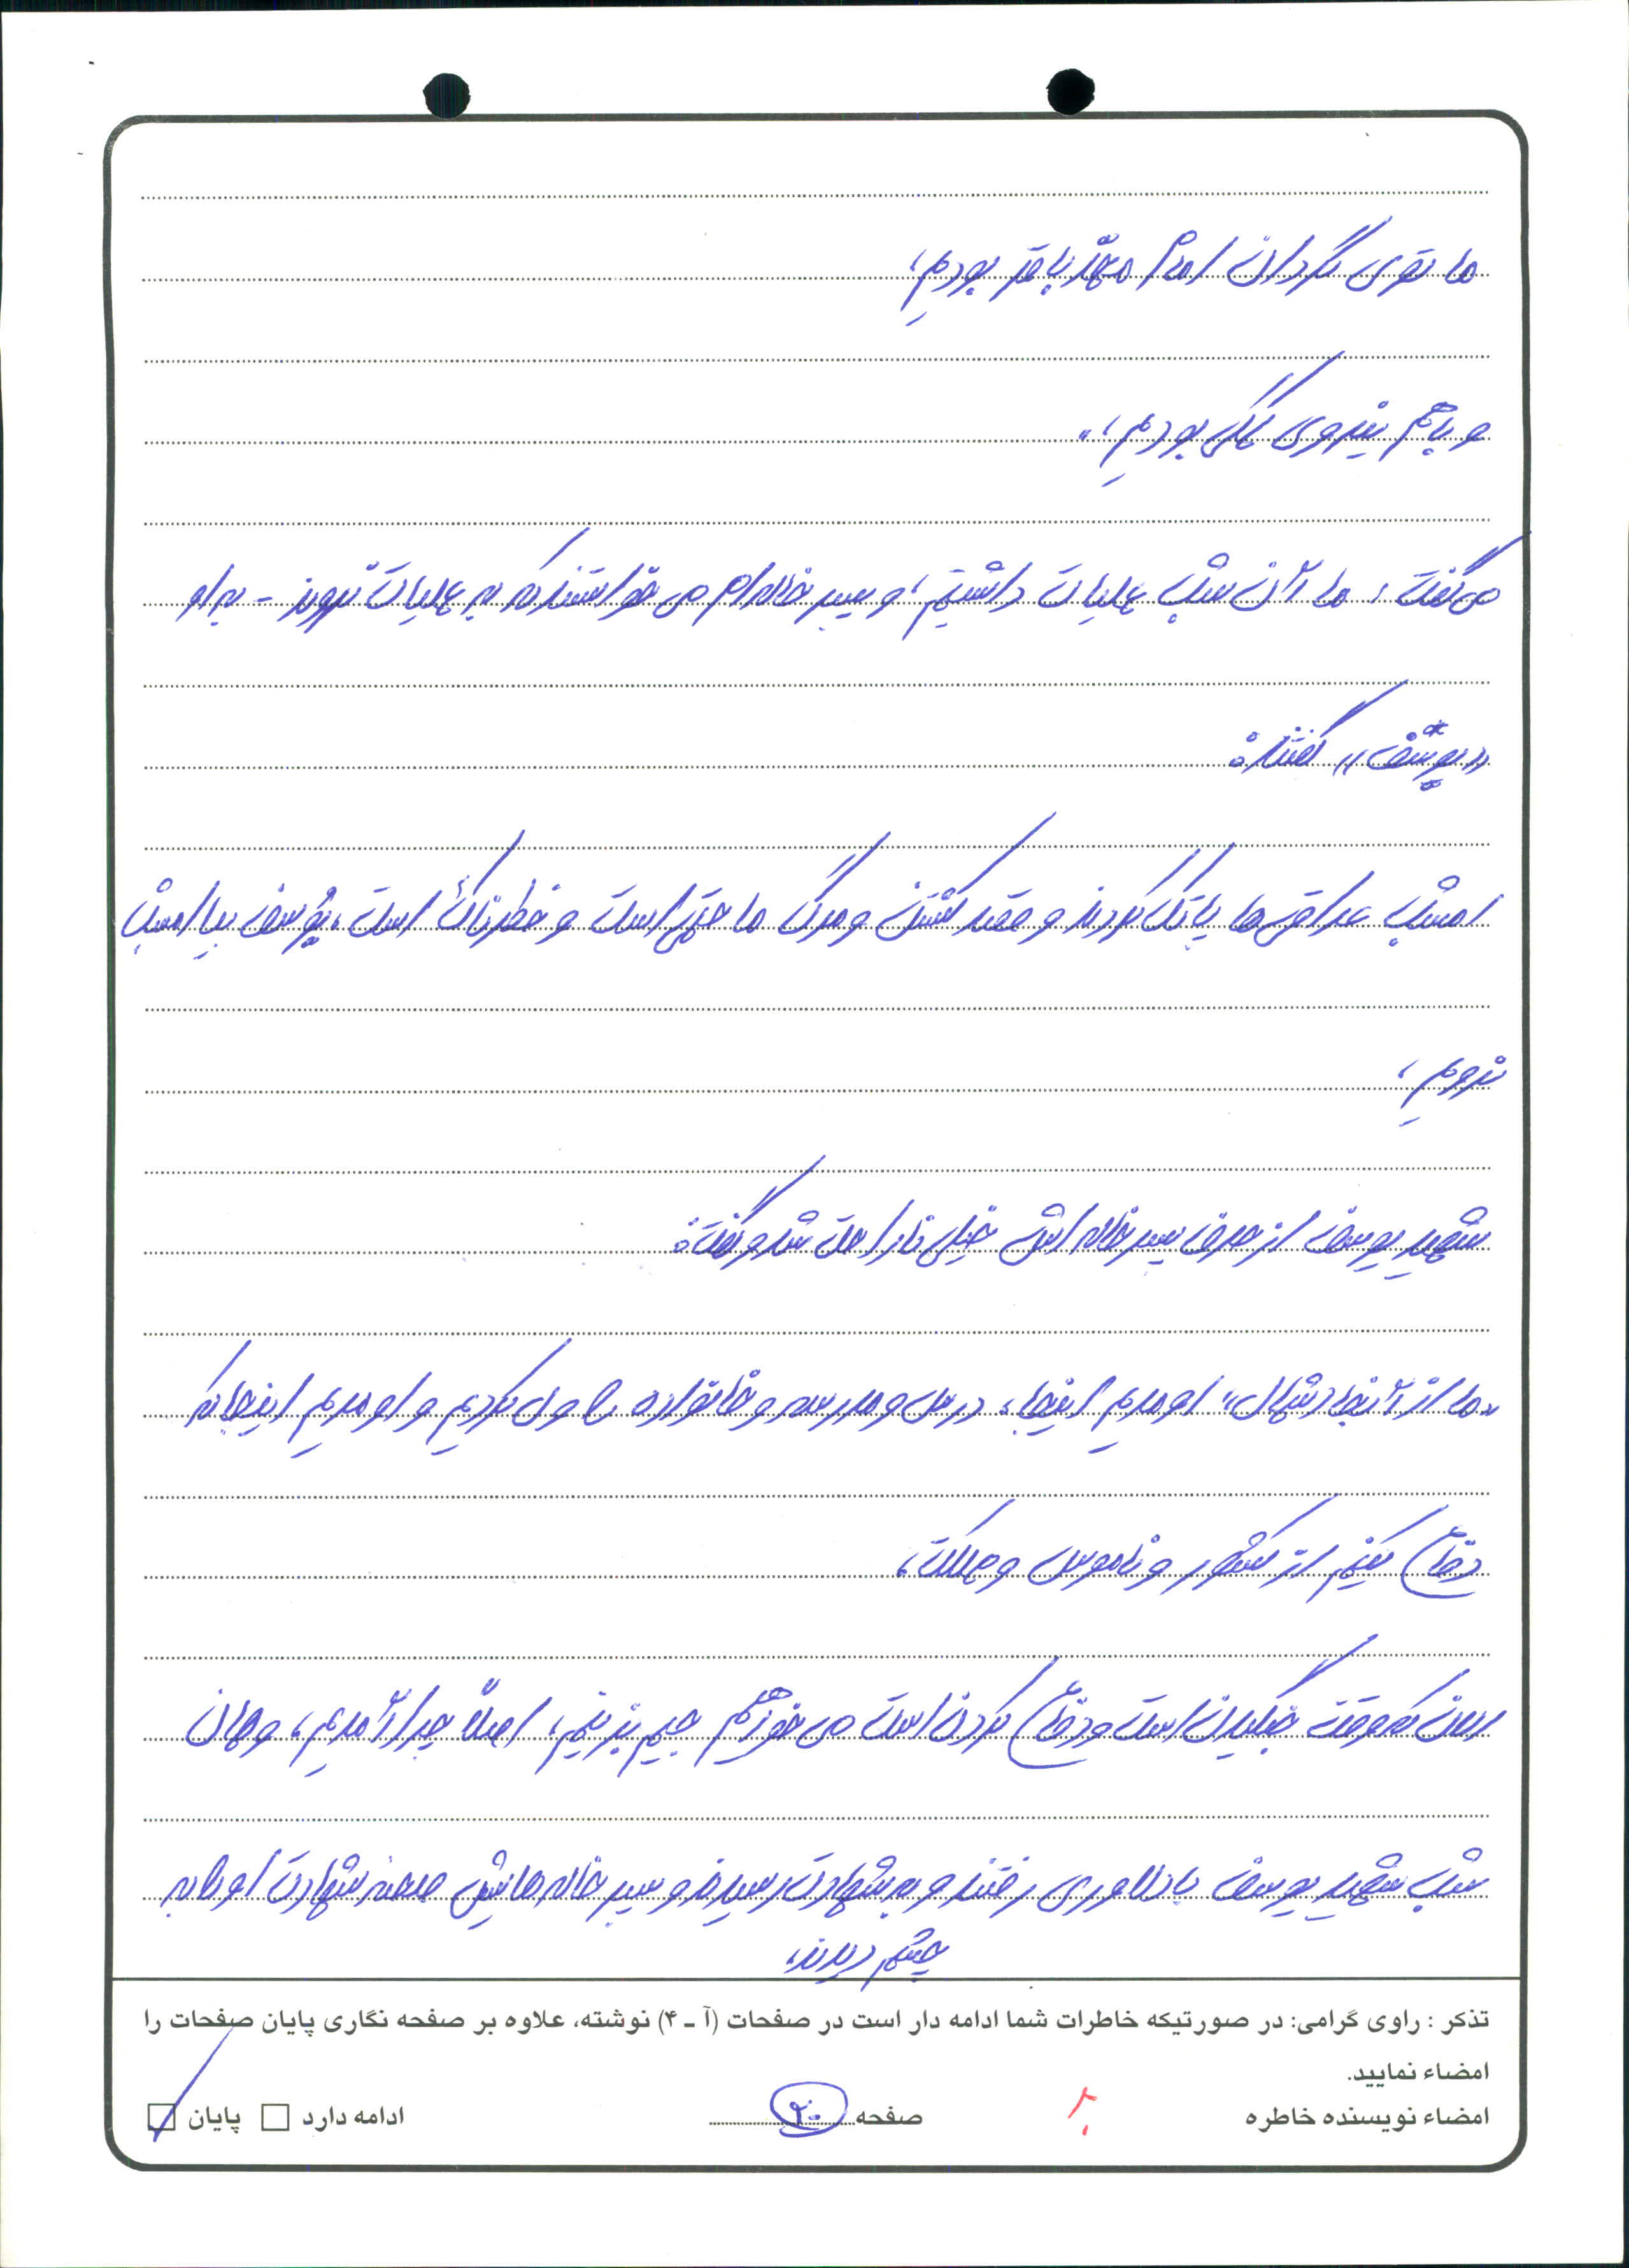 ما توی گردان امام محمّد باقر بودیم،
و با هم نیروی کمکی بودیم،.
می گفت، ما آن شب عملیات داشتیم، و پسر خاله ام می خواستند که به عملیات نروند - به او
«یوسف» گفتند:
امشب عراقی ها پاتک کردند و قصد کشتن و مرگ ما حتمی است و خطرناک است، یوسف بیا امشب
نرویم،
شهید یوسف از حرف پسر خاله اش خیلی ناراحت شد و گفت:
«ما از آنجا «شمال» اومدیم اینجا، درس و مدرسه و خانواده را ول کردیم و اومدیم اینجا که
دفاع کنیم از کشور و ناموس و مملکت،
که وقت جنگیدن است و دفاع کردن است می خواهیم جیم بزنیم، اصلاً چرا آمدیم، و همان
شب شهید یوسف با دلاوری رفتند و به شهادت رسیدند و پسر خاله هایش صحنه شهادت او را به
چشم دیدند،
تذکر : راوی گرامی: در صورتیکه خاطرات شما ادامه دار است در صفحات (آ ـ ۴) نوشته، علاوه بر صفحه نگاری پایان صفحات را
امضاء نمایید.
امضاء نویسنده خاطره صفحه ۲۰ ادامه دارد پایان